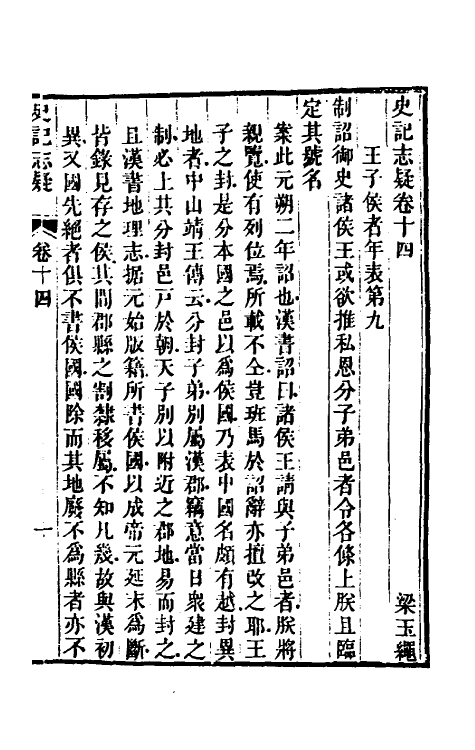 史記志疑卷十四
梁玉繩
王子侯者年表第九
制詔御史諸侯王或欲推私恩分子弟邑者令各條上朕且臨
定其號名
案此元朔二年詔也漢書詔曰諸侯王請與子弟邑者朕將
親覽使有列位焉所載不仝豈班馬於詔辭亦擅改之耶王
子之封是分本國之邑以爲侯國乃表中國名頗有越封異
地者中山靖王傳云分封子弟別屬漢郡竊意當日衆建之
制必上其分封邑戸於朝天子別以附近之郡地易而封之
且漢書地理志据元始版籍所書侯國以成帝元延末爲斷
皆錄見存之侯其間郡縣之割隸移屬不知凡幾故與漢初
異又國先絶者俱不書侯國國除而其地廢不爲縣者亦不
史記志疑
卷十四
一